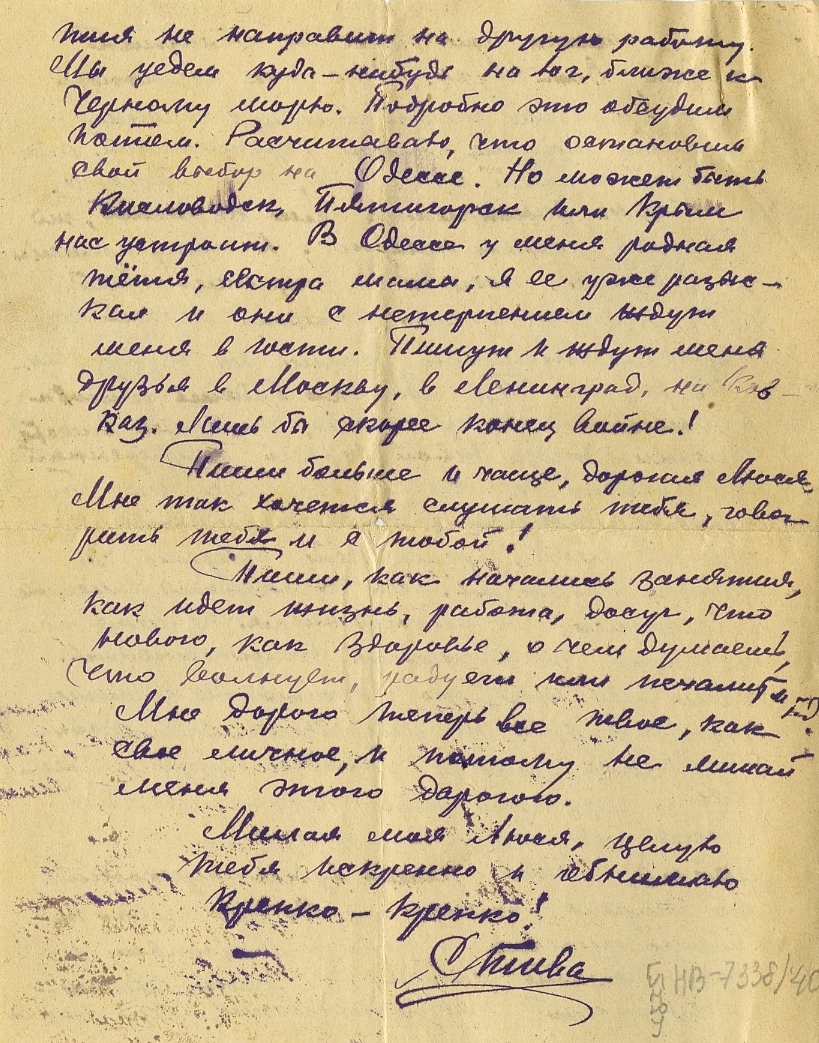 тия не направит на другую работу.
Мы уедем куда-нибудь на юг, ближе к
Черному морю. Подробно это обсудим
потом. Расчитываю, что остановим
свой выбор на Одессе. Но может быть
Кисловодск, Пятигорск или Крым
нас устроит. В Одессе у меня родная
тётя, сестра мамы, я ее уже разыс-
кал и они с нетерпением ждут
меня в гости. Пишут и ждут меня
друзья в Москву, в Ленинград, на Кав-
каз. Лишь бы скорее конец войне!
Пиши больше и чаще, дорогая Люся.
Мне так хочется слушать тебя, гово-
рить тебя и с тобой!
Пиши, как начались занятия,
как идет жизнь, работа, досуг, что
нового, как здоровье, о чем думаешь,
что волнует, радует или печалит и т.д.
Мне дорого теперь все твое, как
свое личное, и потому не лишай
меня этого дорогого.
Милая моя Люся, целую
тебя искренно и обнимаю
крепко-крепко!
Стива
НВ-7338/40